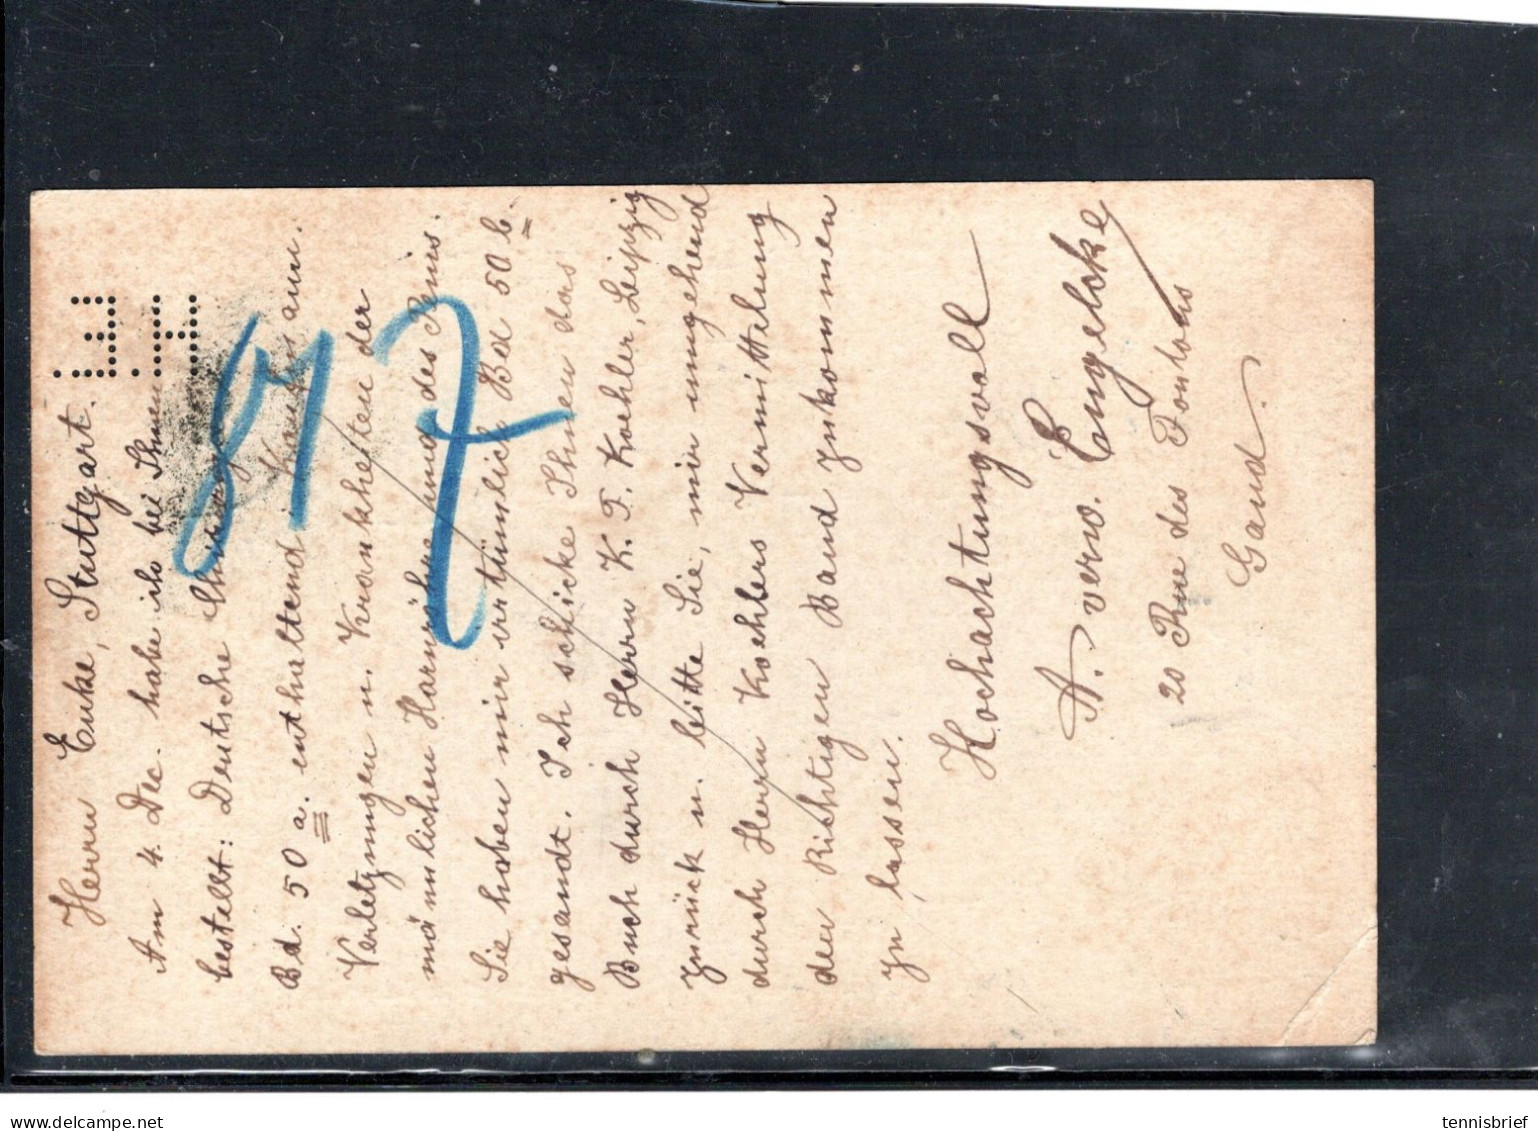 Herrn Enke, Stuttgart.
Am 4. Dec. habe ich bei Ihnen
bestellt: Deutsche Chirurgie
Bd. 50 a. enthaltend: Kaufmann.
Verletzungen u. Krankheiten der
männlichen Harnröhre und des Penis.
Sie haben mir irrtümlich Bd 50 b.
gesandt. Ich schicke Ihnen das
Buch durch Herrn K. F. Koehler, Leipzig
zurück u. bitte Sie, mir umgehend
durch Herrn Koehlers Vermittelung
den Richtigen Band zukommen
zu lassen.
Hochachtungsvoll
A. verw. Engelcke
20 Rue des
Gand.
E.H.
97
tennisbrief